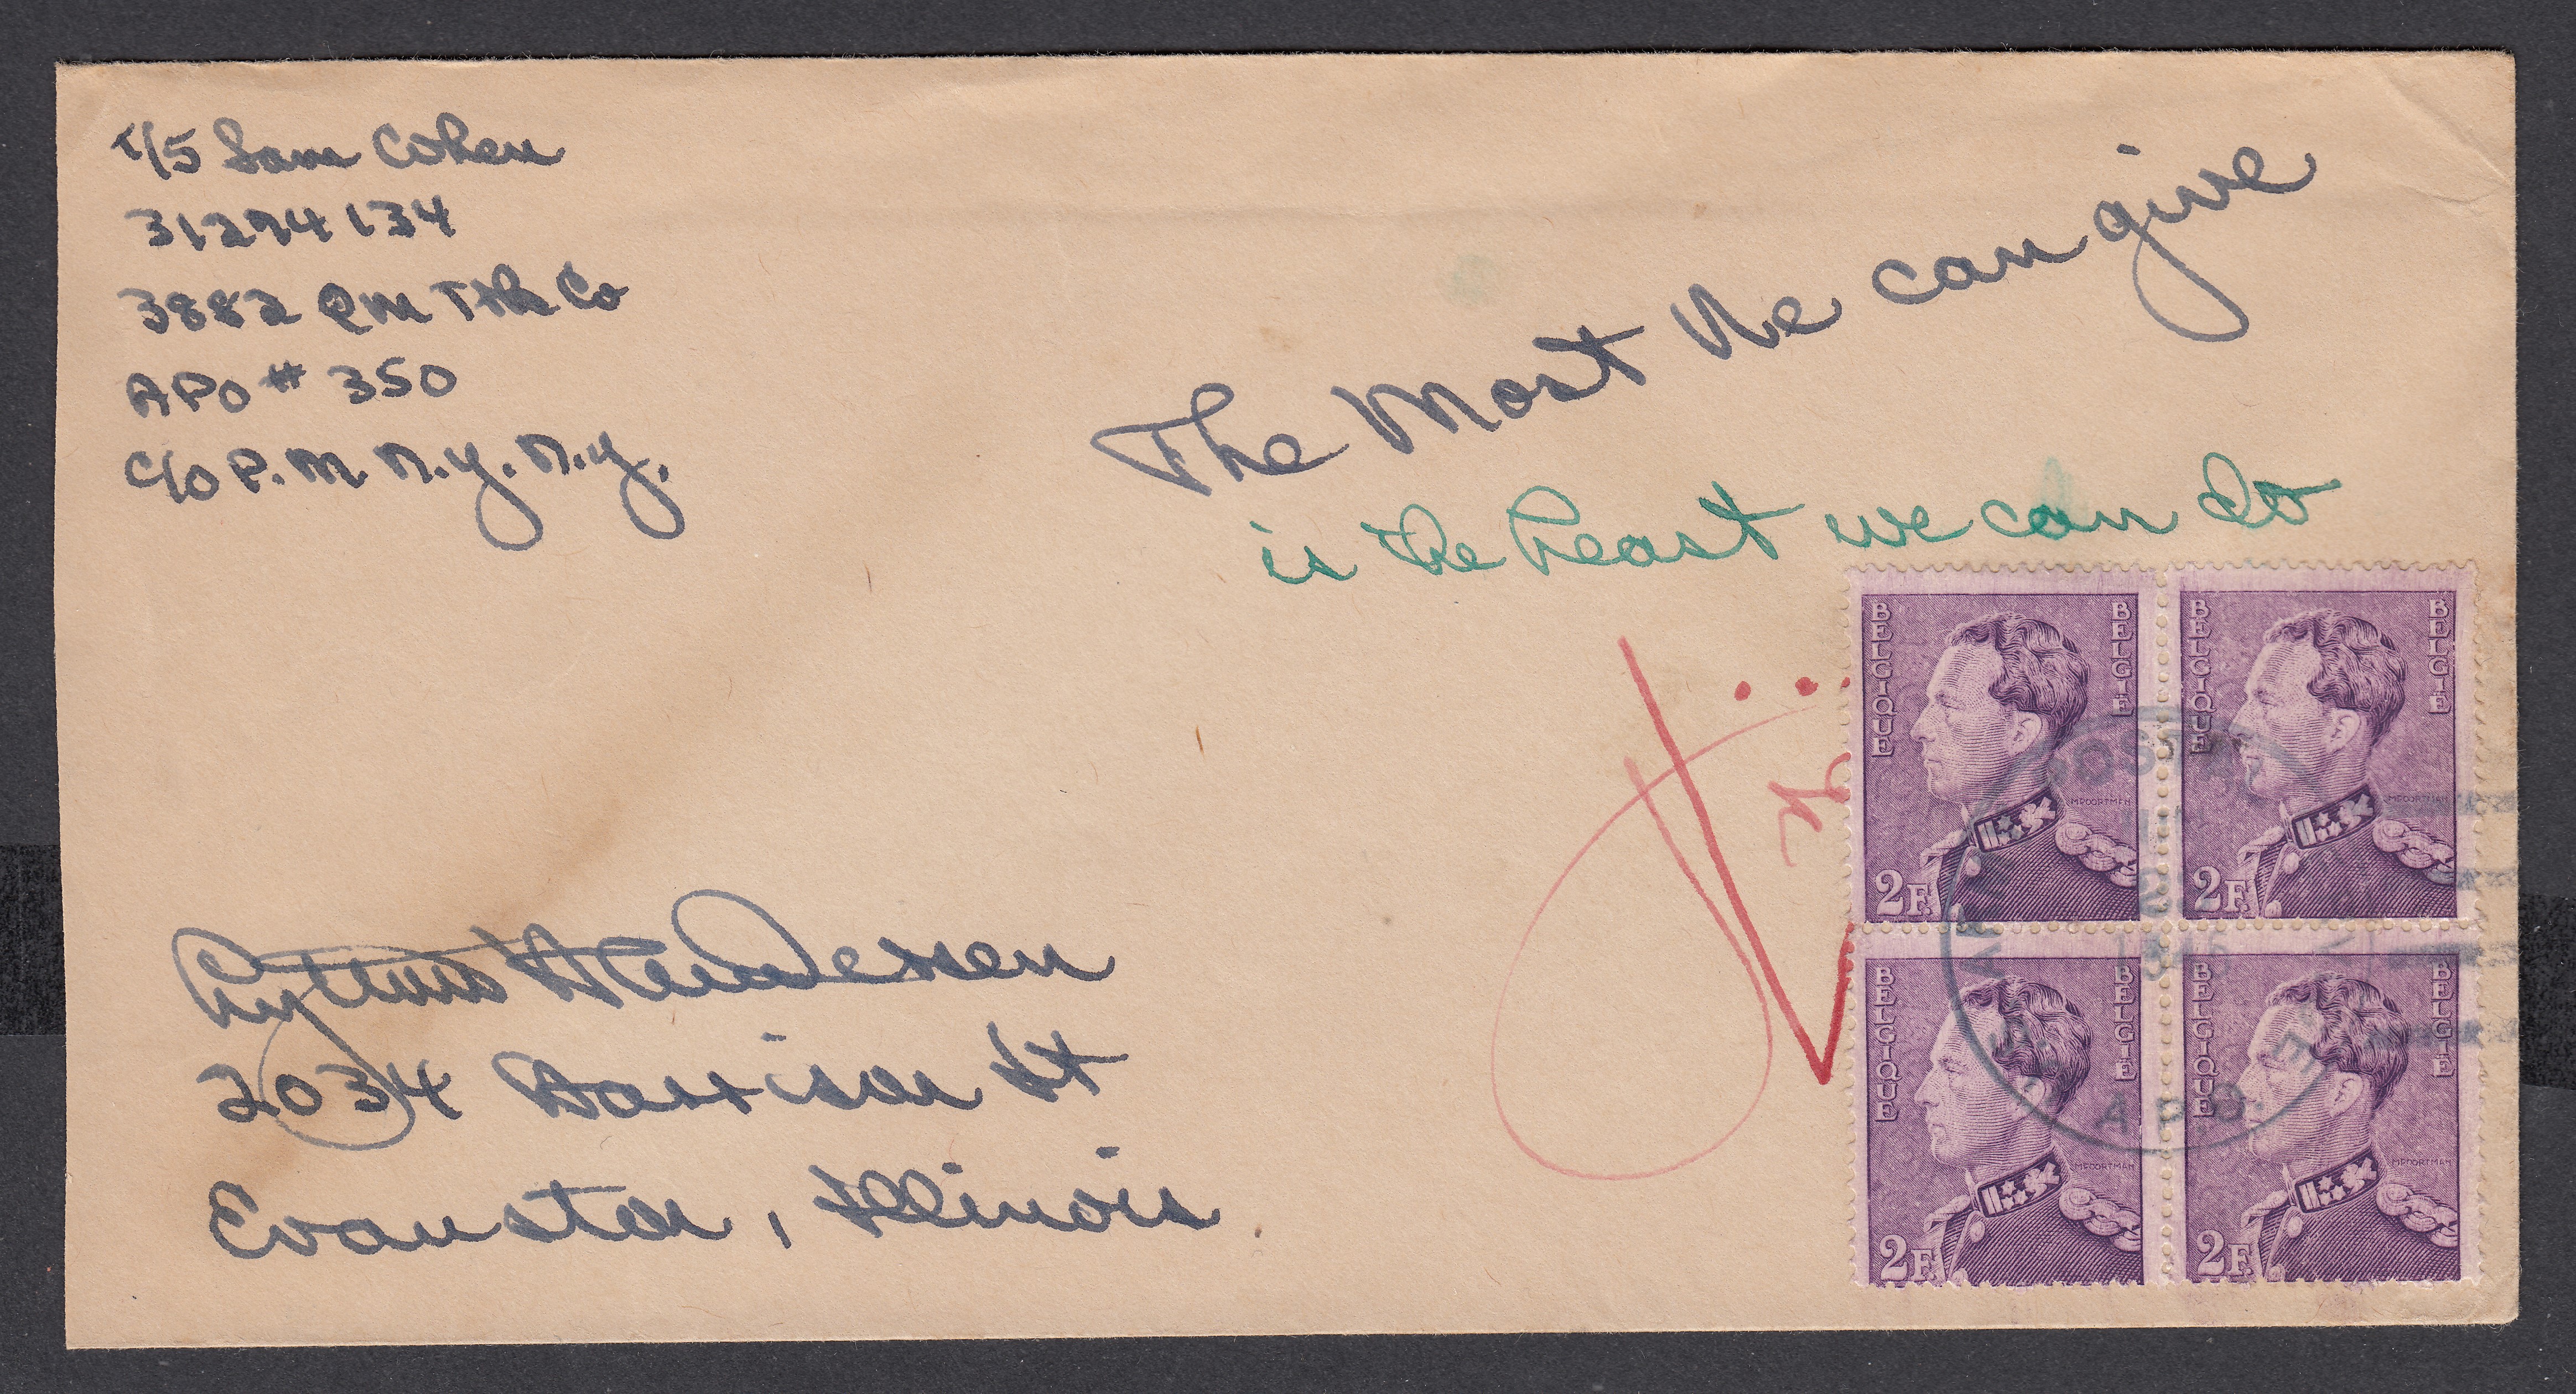 T/5 Sam Cohen
31294134
3882 QM Trk Co
APO # 350
C/O P.M. N.Y. N.Y.
The Most We can give
is the least we can do
BELGIQUE BELGIË
MPOORTMAN
2F
BELGIQUE BELGIË
MPOORTMAN
2F
BELGIQUE BELGIË
MPOORTMAN
2F
BELGIQUE BELGIË
MPOORTMAN
2F
POSTAL
A.P.O.
2034 Harrison St
Evanston, Illinois